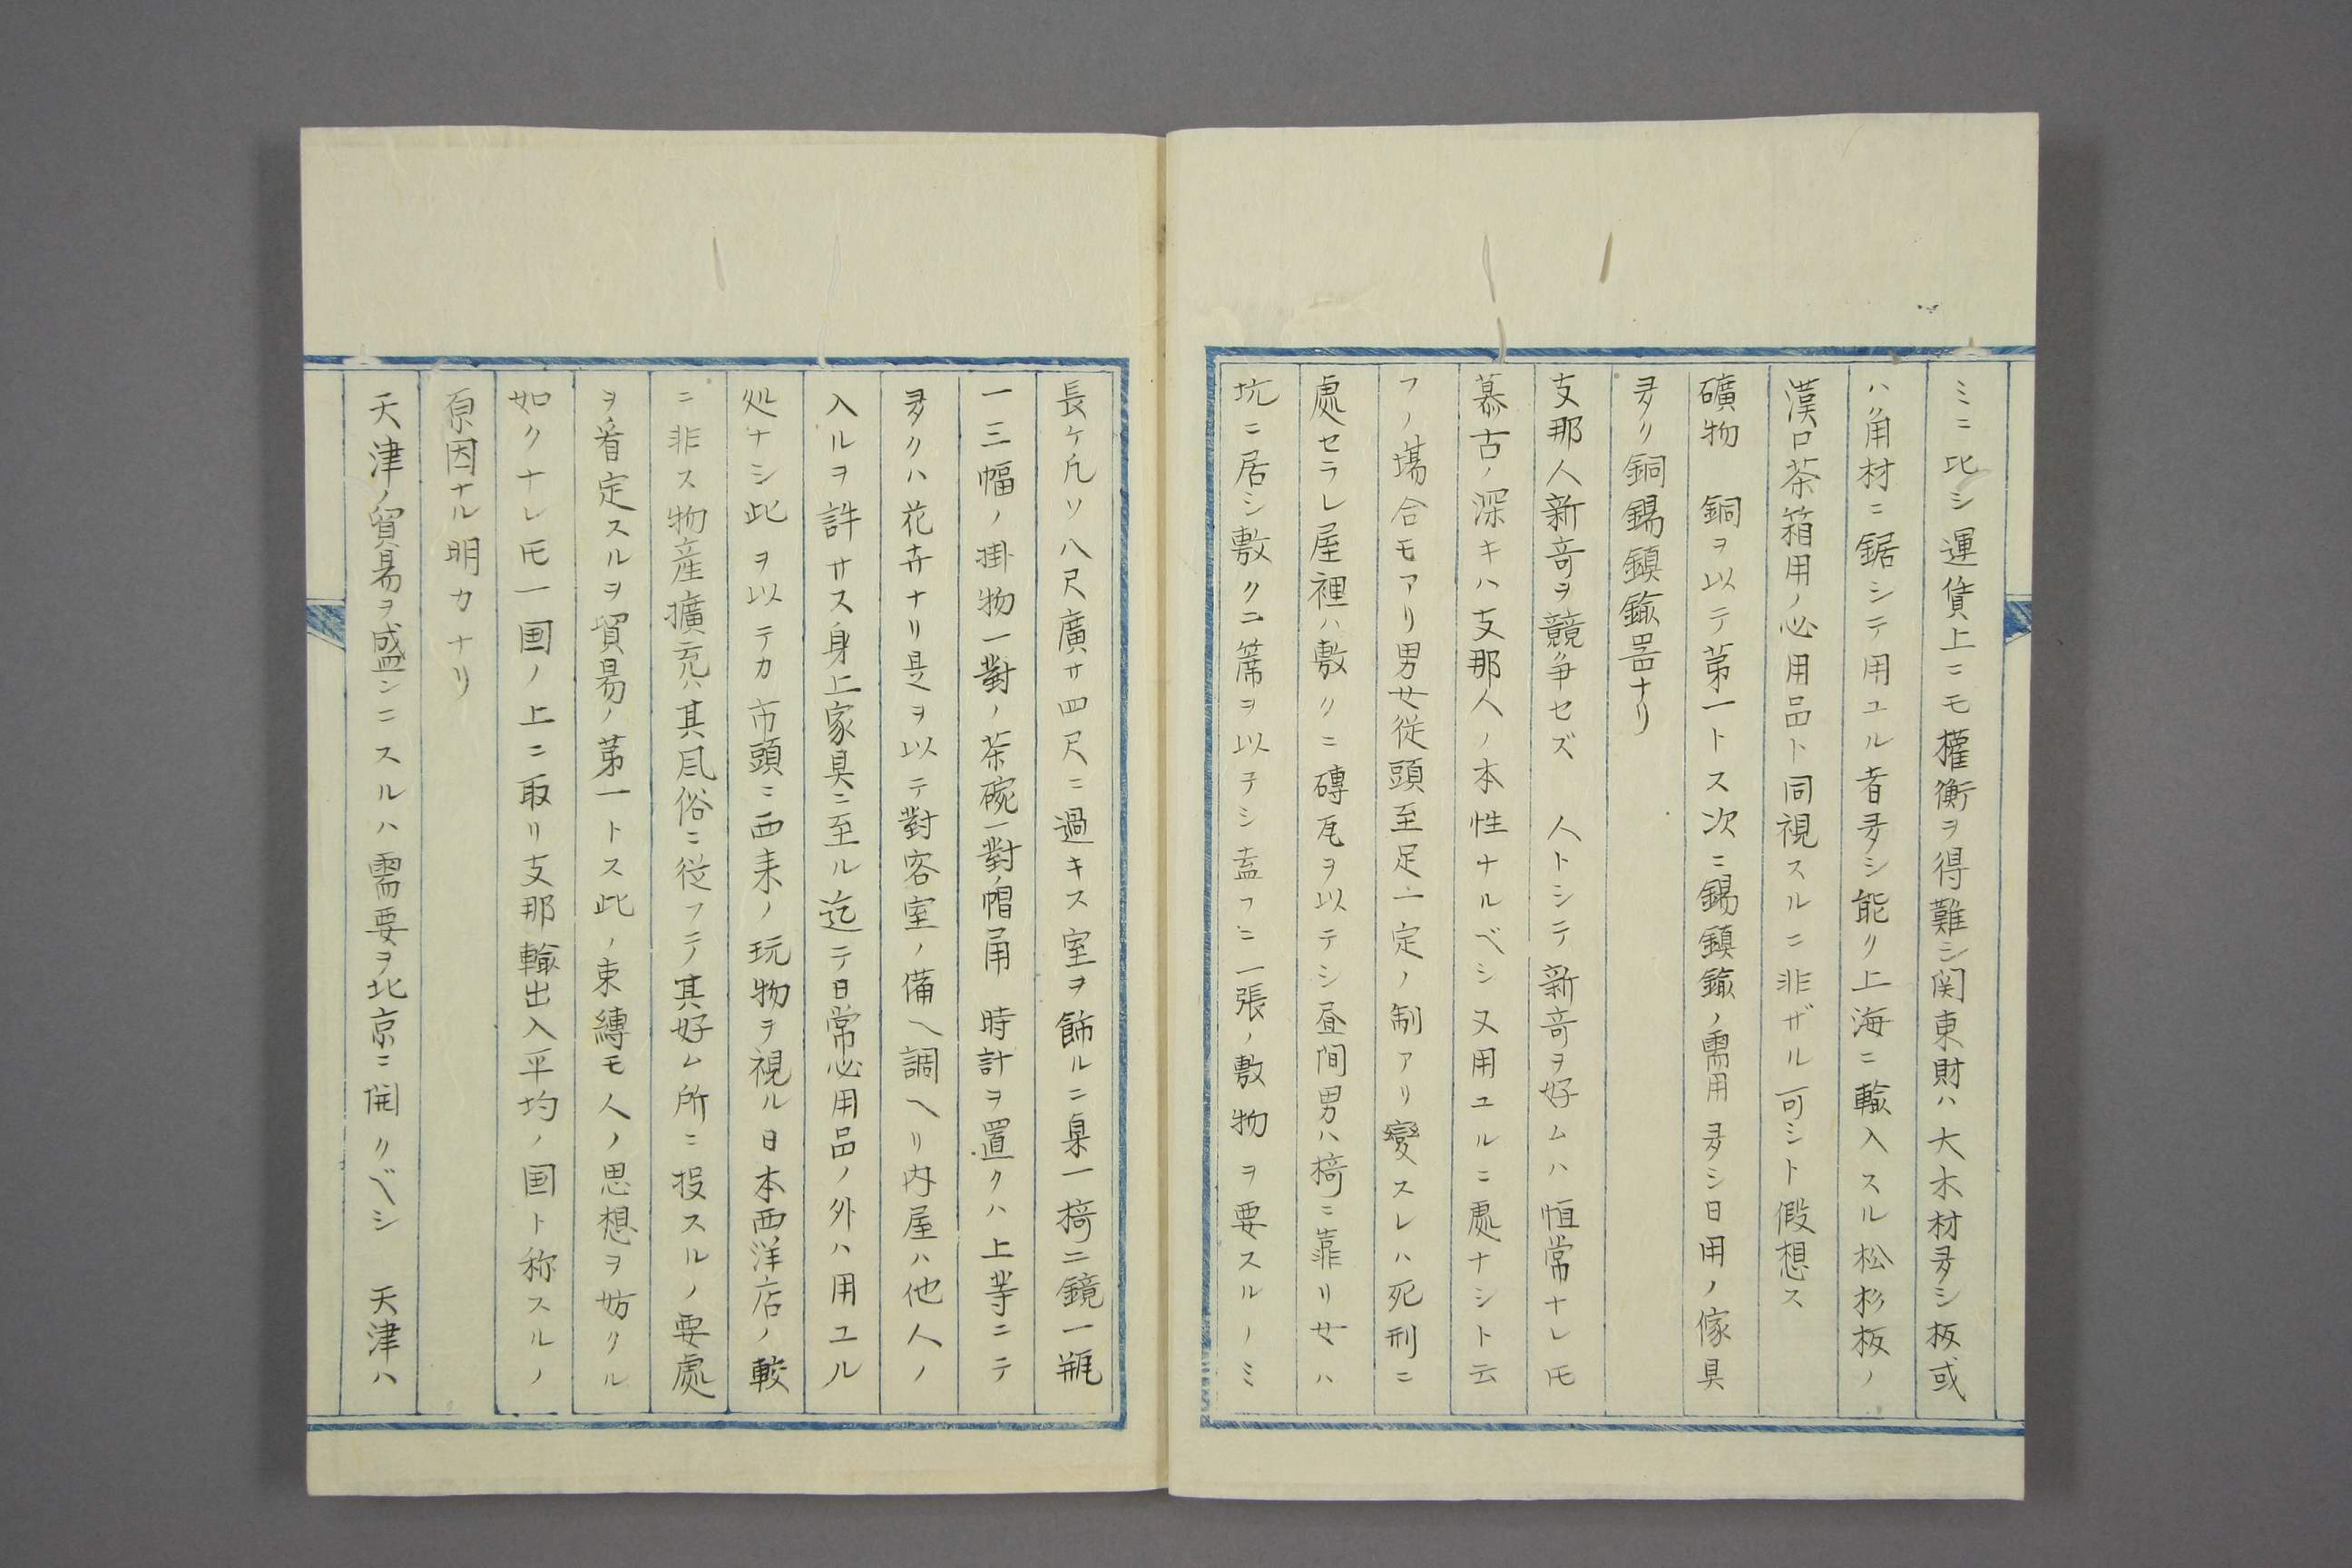 ミニ比シ運賃上ニモ權衡ヲ得難シ関東財ハ大木材多シ板或
ハ角材ニ鋸シテ用ユル者多シ能ク上海ニ輸入スル松杉板ノ
漢口茶箱用ノ必用品ト同視スルニ非ザル可シト假想ス
礦物　銅ヲ以テ第一トス次ニ錫鎮鍮ノ需用多シ日用ノ傢具
多クハ銅錫鎮鍮器ナリ
支那人新奇ヲ競争セズ　人トシテ新奇ヲ好ムハ恒常ナレ𪜈
慕古ノ深キハ支那人ノ本性ナルベシ又用ユルニ處ナシト云
フノ場合モアリ男女従頭至足一定ノ制アリ變スレハ死刑ニ
處セラレ屋裡ハ敷クニ磚瓦ヲ以テシ昼间男ハ椅ニ靠リ女ハ
坑ニ居シ敷クニ席ヲ以テシ盖フニ一張ノ敷物ヲ要スルノミ
長ケ凡ソ八尺廣サ四尺ニ過キス室ヲ飾ルニ梟一椅二鏡一瓶
一三幅ノ掛物一對ノ茶碗一對ノ帽筩　時計ヲ置クハ上等ニテ
多クハ花卉ナリ是ヲ以テ對客室ノ備ヘ調ヘリ内屋ハ他人ノ
入ルヲ許サス身上家具ニ至ル迄テ日常必用品ノ外ハ用ユル
処ナシ此ヲ以テカ市頭ニ西来ノ玩物ヲ視ル日本西洋店ノ較
ニ非ス物産擴充ハ其風俗ニ従フテ其好ム所ニ投スルノ要處
ヲ着定スルヲ貿易ノ第一トス此ノ束縛モ人ノ思想ヲ妨クル
如クナレ𪜈一国ノ上ニ取リ支那輸出入平均ノ国ト称スルノ
原因ナル明カナリ
天津ノ貿易ヲ盛ンニスルハ需要ヲ北京ニ開クベシ　天津ハ